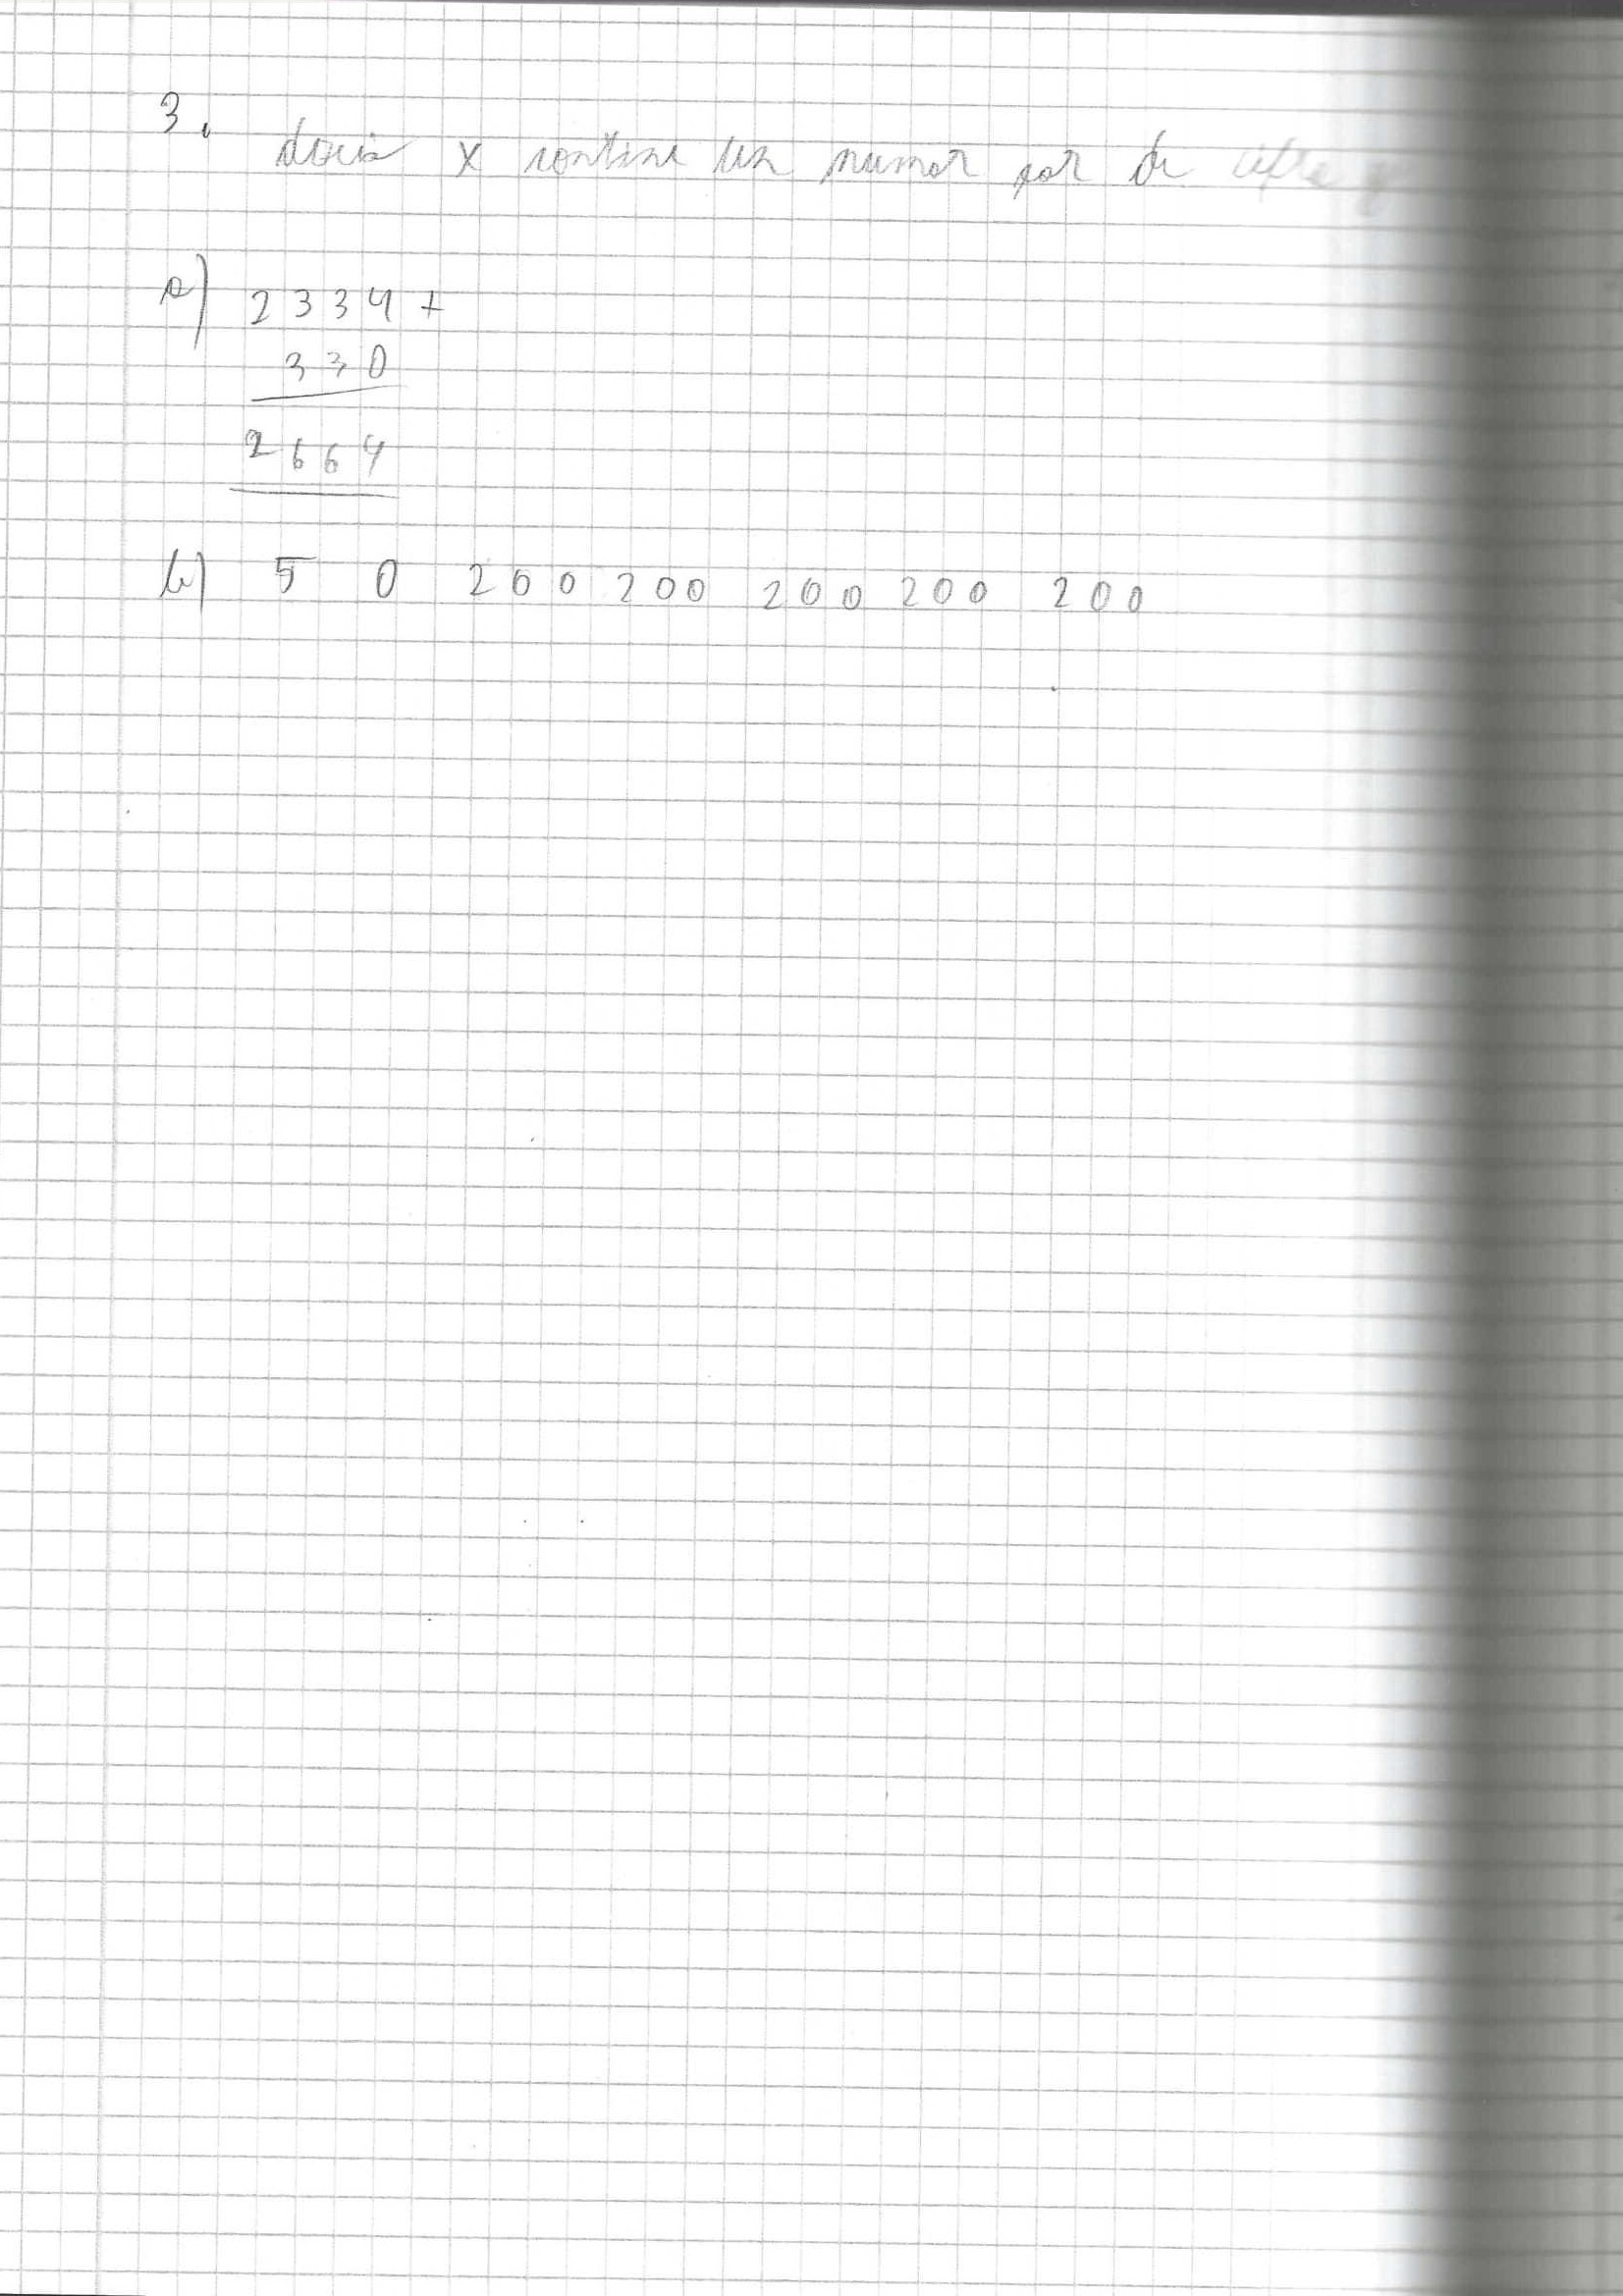 3.
dacă x contine un numar par de cifre
a) 2334+
330
2664
b) 5 0 200 200 200 200 200